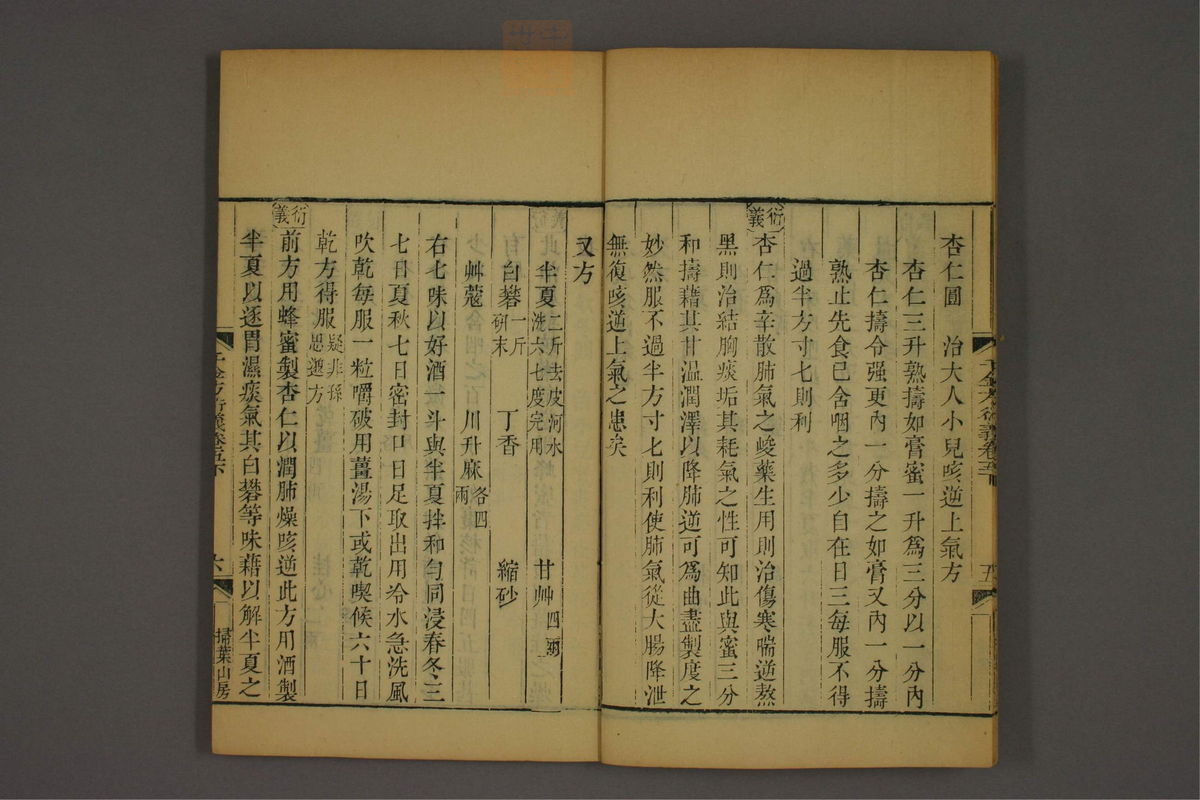 杏仁圓　治大人小兒咳逆上氣方
杏仁三升熟擣如膏蜜一升爲三分以一分內
杏仁擣令强更內一分擣之如膏又內一分擣
熟止先食已含咽之多少自在日三每服不得
過半方寸匕則利
衍義
杏仁爲辛散肺氣之峻藥生用則治傷寒喘逆熬
黑則治結胸痰垢其耗氣之性可知此與蜜三分
和擣藉其甘温潤澤以降肺逆可爲曲盡製度之
妙然服不過半方寸匕則利使肺氣從大腸降泄
無復咳逆上氣之患矣
五
又方
半夏二斤去皮河水洗六七度完用　甘艸四兩
白礬一斤硏末　丁香　縮砂
艸蔻　川升麻各四兩
右七味以好酒一斗與半夏拌和勻同浸春冬三
七日夏秋七日密封口日足取出用冷水急洗風
吹乾每服一粒嚼破用薑湯下或乾喫候六十日
乾方得服疑非孫思邈方
衍義
前方用蜂蜜製杏仁以潤肺燥咳逆此方用酒製
半夏以逐胃濕痰氣其白礬等味藉以解半夏之
六
掃葉山房